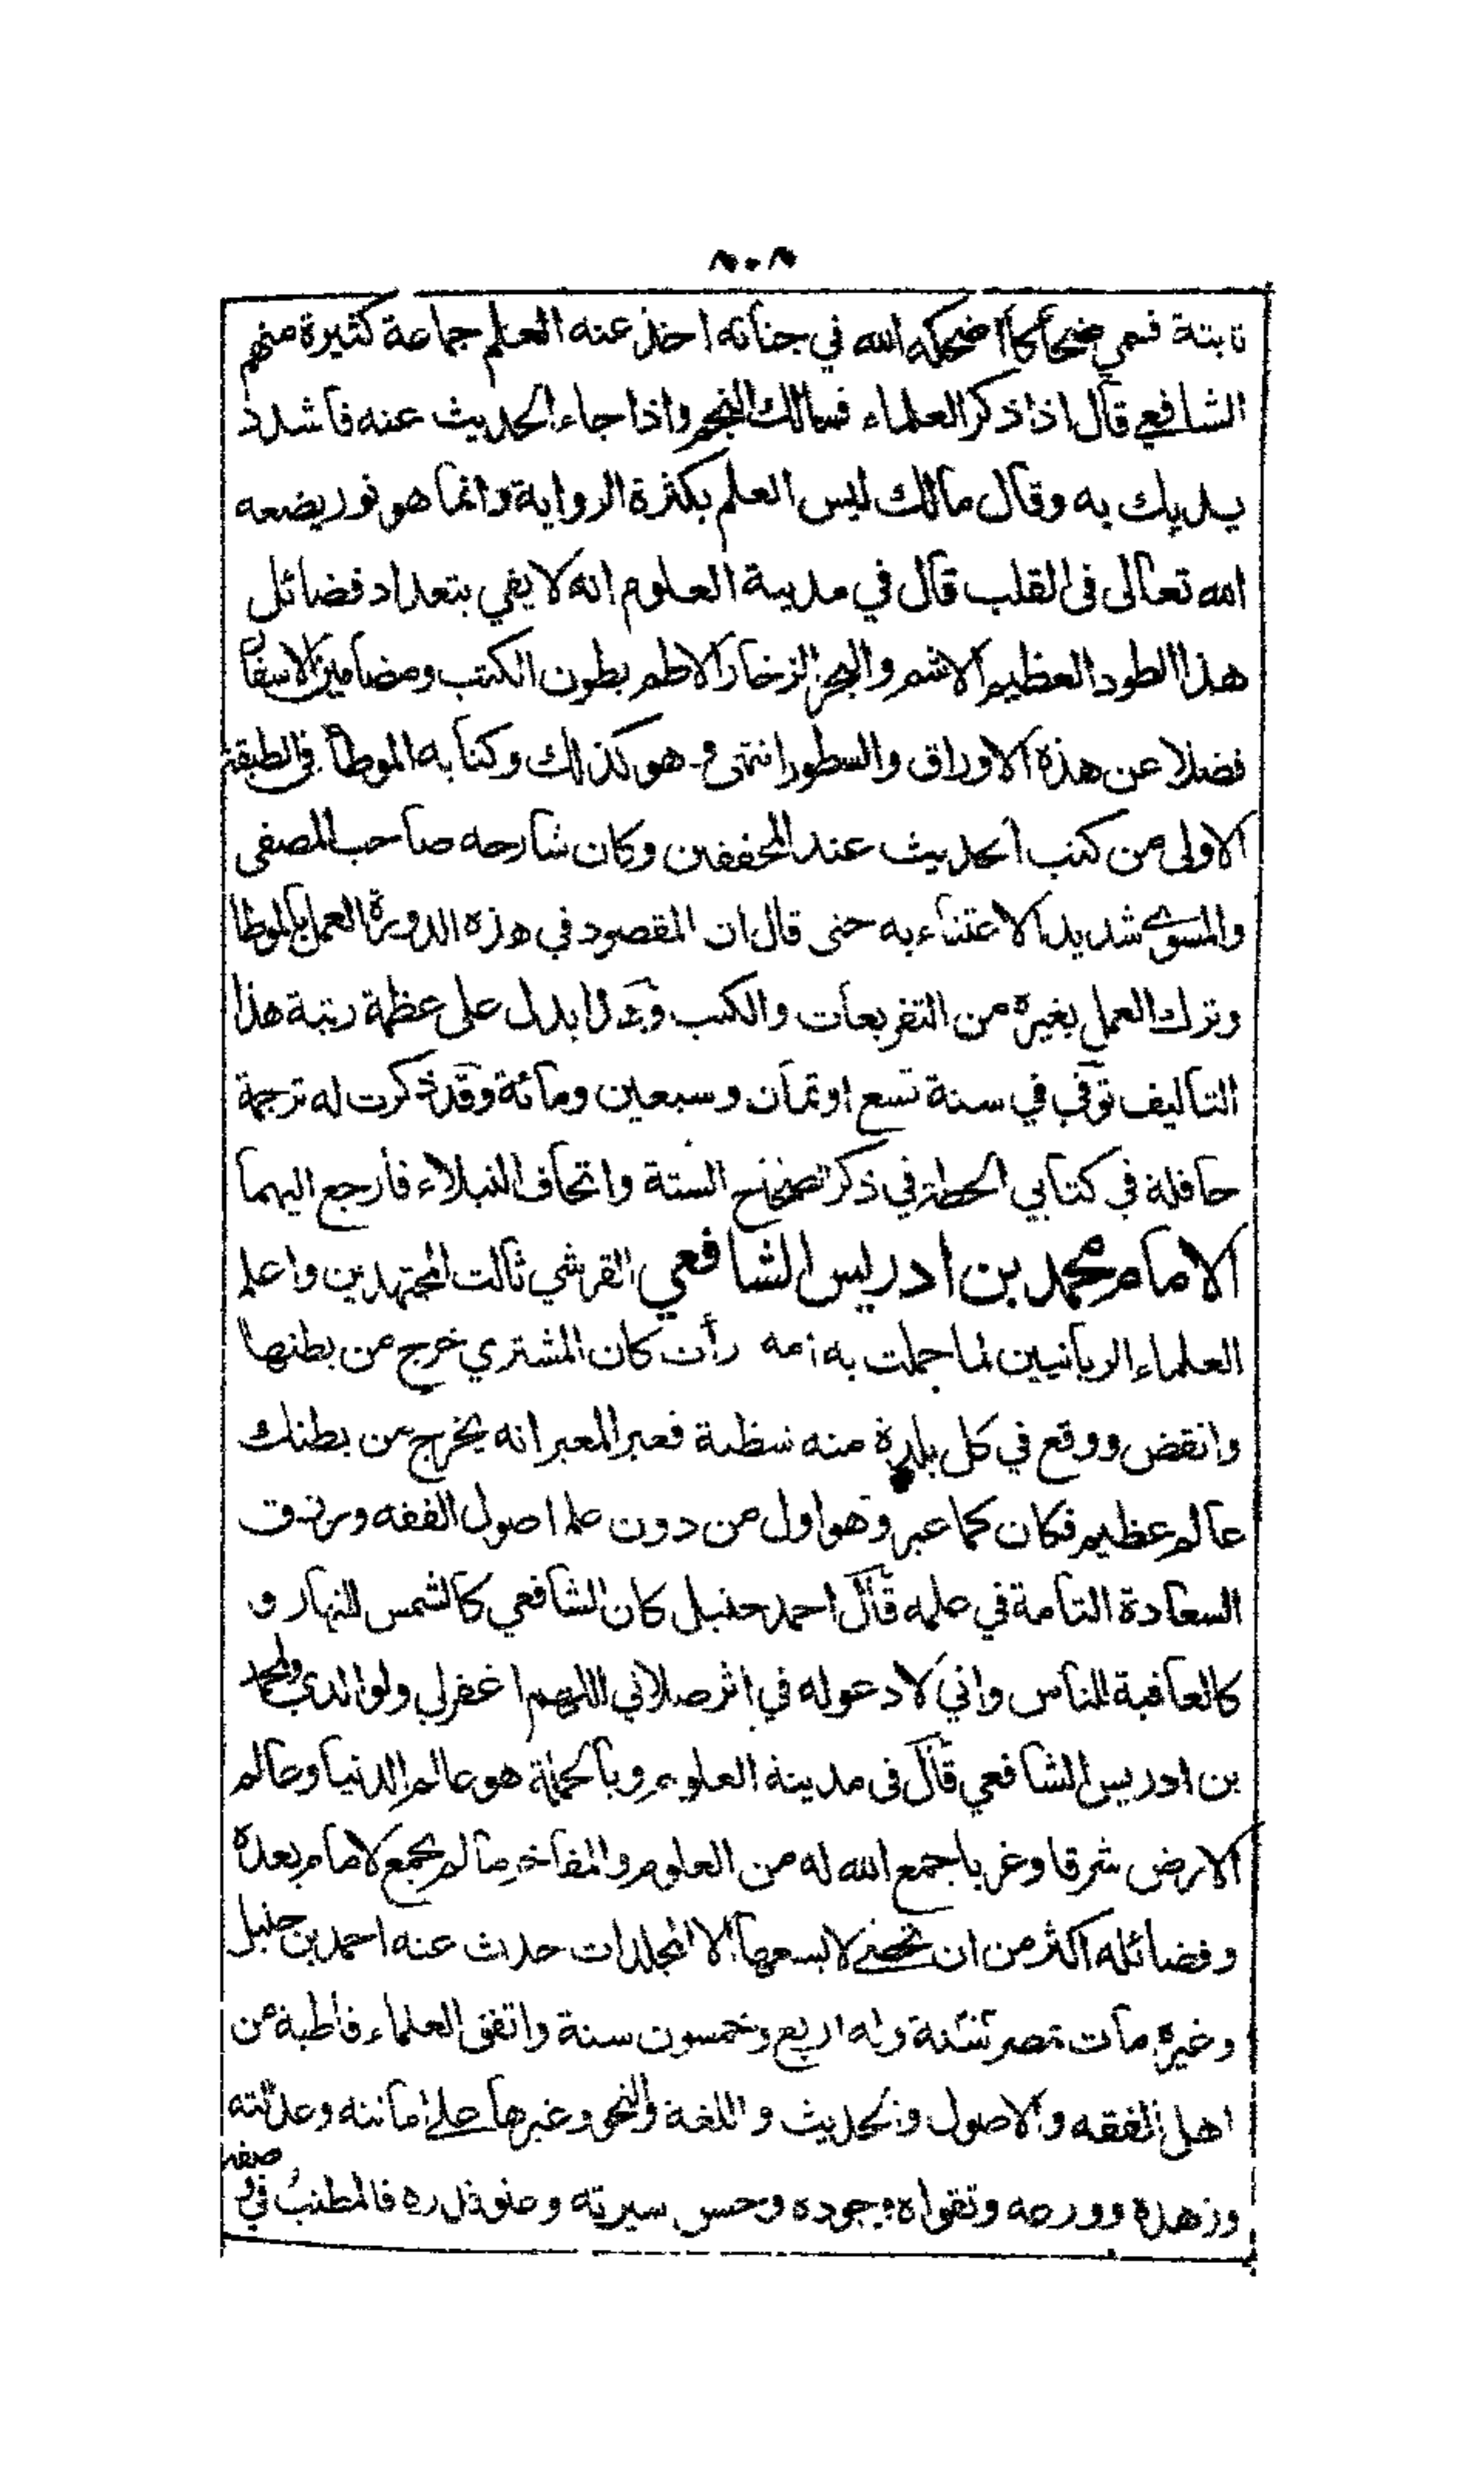 ٨٠٨
نابتة فسمي ضحاكا اضحكه الله في جنانه اخذ عنه العلم جماعة كثيرة منهم
الشافعي قال اذا ذكر العلماء فمالك النجم واذا جاء الحديث عنه فاشدد
يديك به وقال مالك ليس العلم بكثرة الرواية وانما هو نور يضعه
الله تعالى في القلب قال في مدينة العلوم انه لا يفي بتعداد فضائل
هذا الطود العظيم الاشم والبحر الزخار الاطم بطون الكتب ومضامين الاسفار
فضلا عن هذه الاوراق والسطور انتهى وهو كذلك وكتابه الموطأ في الطبقة
الاولى من كتب الحديث عند المحققين وكان شارحه صاحب المصفى
والمسوى شديد الاعتناء به حتى قال ان المقصود في هذه الدورة العمل بالموطا
وترك العمل بغيره من التفريعات والكتب وهذا يدل على عظمة رتبة هذا
التاليف توفي في سنة تسع او ثمان وسبعين ومائة وقد ذكرت له ترجمة
حافلة في كتابي الحطة في ذكر الصحاح الستة واتحاف النبلاء فارجع اليهما
الامام محمد بن ادريس الشافعي القرشي ثالث المجتهدين واعلم
العلماء الربانيين لما حملت به امه رأت كان المشتري خرج من بطنها
وانقض ووقع في كل بلدة منه شظية فعبر المعبر انه يخرج من بطنك
عالم عظيم فكان كما عبر وهو اول من دون علم اصول الفقه ورزق
السعادة التامة في علمه قال احمد حنبل كان الشافعي كالشمس للنهار و
كالعافية للناس واني لادعو له في اثر صلاتي اللهم اغفر لي ولوالدي ولمحمد
بن ادريس الشافعي قال في مدينة العلوم وبالجملة هو عالم الدنيا وعالم
الارض شرقا وغربا جمع الله له من العلوم والمفاخر ما لم يجمع لامام بعده
وفضائله اكثر من ان تحصى لا يسعها الا المجلدات حدث عنه احمد بن حنبل
وغيره مات بمصر سنة وله اربع وخمسون سنة واتفق العلماء قاطبة من
اهل الفقه والاصول والحديث واللغة والنحو وغيرها على امانته وعدالته
وزهده وورعه وتقواه وجوده وحسن سيرته وعلو قدره فالمطنب في صفته